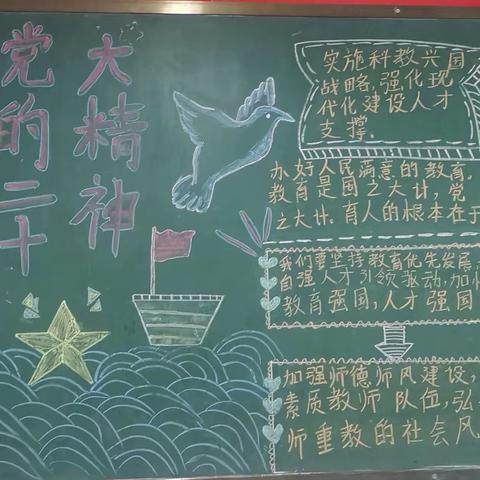 党的二十
大精神
实施科教兴国
战略,强化现
代化建设人才
支撑.
办好人民满意的教育.
教育是国之大计,党
之大计.育人的根本在于
我们要坚持教育优先发展,
自强人才引领驱动,加快
教育强国,人才强国
加强师德师风建设,
素质教师队伍,弘
师重教的社会风